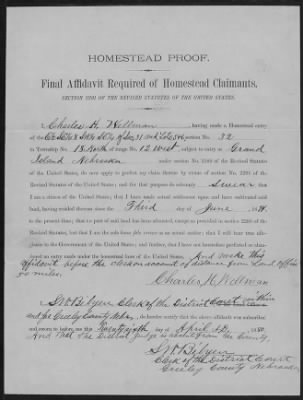 HOMESTEAD PROOF.
Final Affidavit Required of Homestead Claimants,
SECTION 2291 OF THE REVISED STATUTES OF THE UNITED STATES.
Charles H. Wellman, having made a Homestead entry
of the section No. 32
in Township No. 18 North of range No. 12 West, subject to entry at Grand
Island Nebraska under section No. 2289 of the Revised Statutes
of the United States, do now apply to perfect my claim thereto by virtue of section No. 2291 of the
Revised Statutes of the United States; and for that purpose do solemnly Swear that
I am a citizen of the United States; that I have made actual settlement upon and have cultivated said
land, having resided thereon since the Third day of June
to the present time; that no part of said land has been alienated, except as provided in section 2288 of
the Revised Statutes, but that I am the sole bona fide owner as an actual settler; that I will bear true
allegiance to the Government of the United States; and further, that I have not heretofore perfected or abandoned
an entry made under the homestead laws of the United States. And make this
affidavit before the clerk on account of distance from Land office
miles.
Charles H. Wellman
I, Clerk of the District Court within
and for Greeley County Nebr, do hereby certify that the above affidavit was subscribed
and sworn to before me this day of April A.D. 1880.
And That The District Judge is absent from the County.
Clerk of the District Court
Greeley County Nebraska